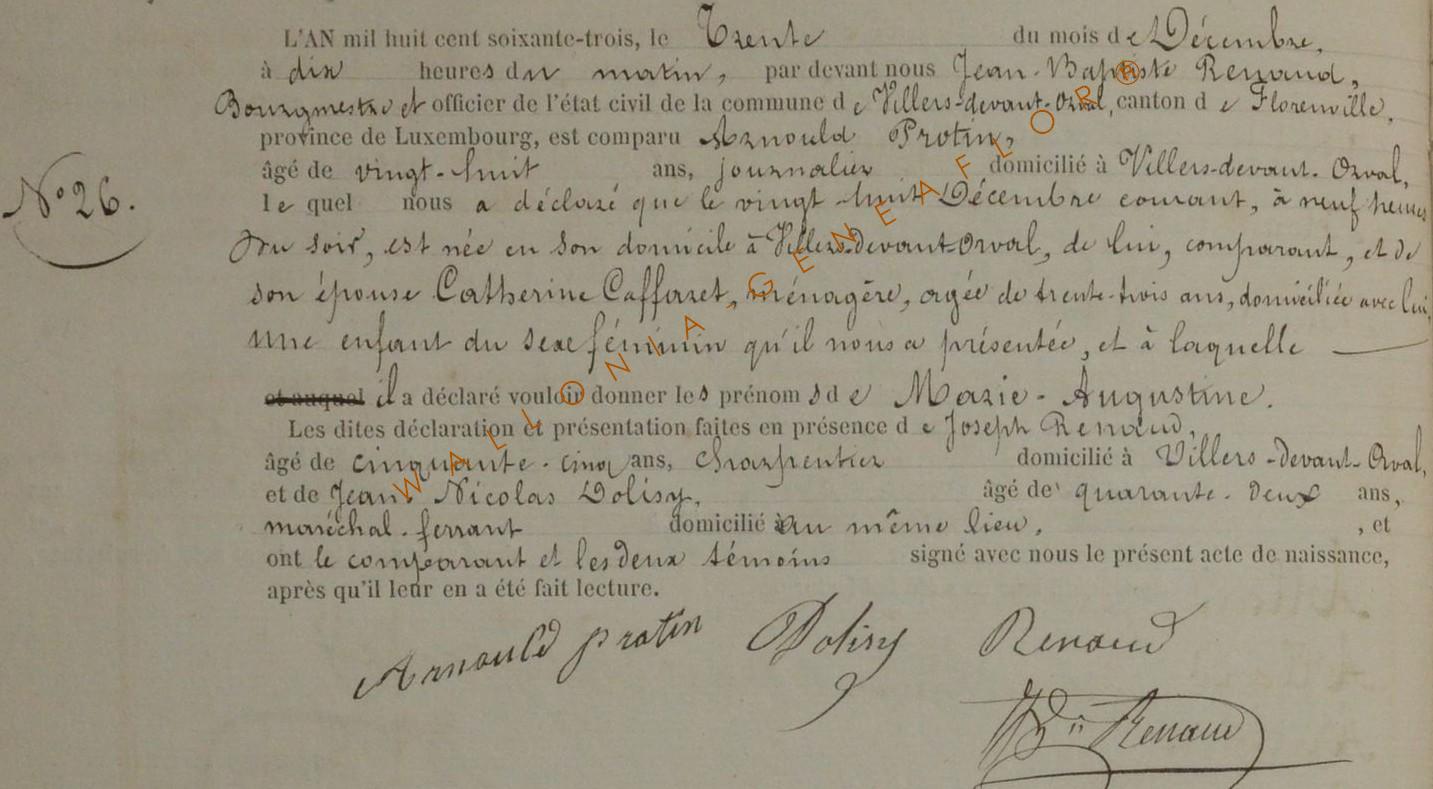 L'AN mil huit cent soixante-trois, le Trente du mois de Décembre,
à dix heures du matin, par devant nous Jean-Baptiste Renaud,
Bourgmestre et officier de l'état civil de la commune de Villers-devant-Orval, canton de Florenville,
province de Luxembourg, est comparu Arnould Protin,
âgé de vingt-huit ans, journalier domicilié à Villers-devant-Orval,
N° 26.
lequel nous a déclaré que le vingt-huit Décembre courant, à neuf heures
du soir, est née en son domicile à Villers-Devant-Orval, de lui, comparant, et de
son épouse Catherine Caffaret, ménagère, agée de trente-trois ans, domiciliée avec lui,
une enfant du sexe féminin qu'il nous a présentée, et à laquelle
et auquel il a déclaré vouloir donner les prénoms de Marie-Augustine.
Les dites déclaration et présentation faites en présence de Joseph Renaud,
âgé de cinquante-cinq ans, Charpentier domicilié à Villers-Devant-Orval,
et de Jean Nicolas Dolisy, âgé de quarante-Deux ans,
maréchal-ferrant domicilié à au même lieu, , et
ont le comparant et les deux témoins signé avec nous le présent acte de naissance,
après qu'il leur en a été fait lecture.
Arnould protin Dolisy Renaud
JBte Renaud
WALLONIA GENEAFL ORG